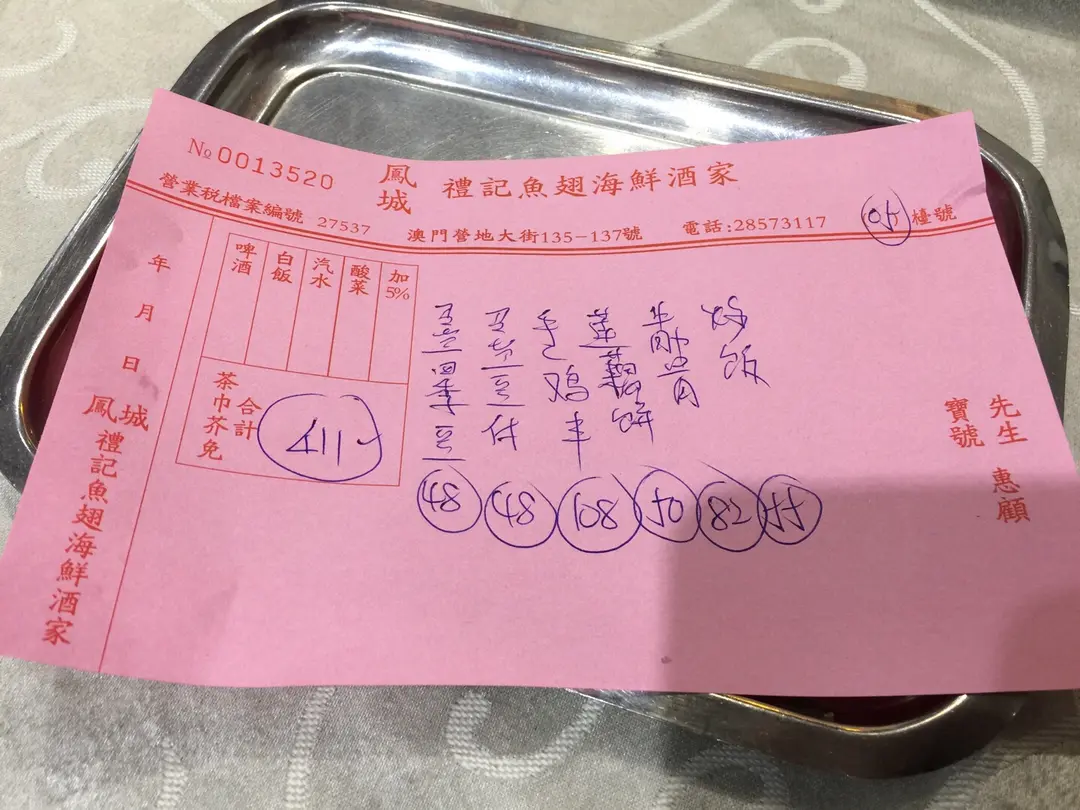 № 0013520
鳳城 禮記魚翅海鮮酒家
營業税檔案編號 27537 澳門營地大街135-137號 電話:28573117 檯號
加5%
酸菜
汽水
白飯
啤酒
茶巾芥免
合計
411
年 月 日
炒飯
毛鸡半
四季豆
48 48 108 50 82
先生
寶號
惠顧
鳳城禮記魚翅海鮮酒家